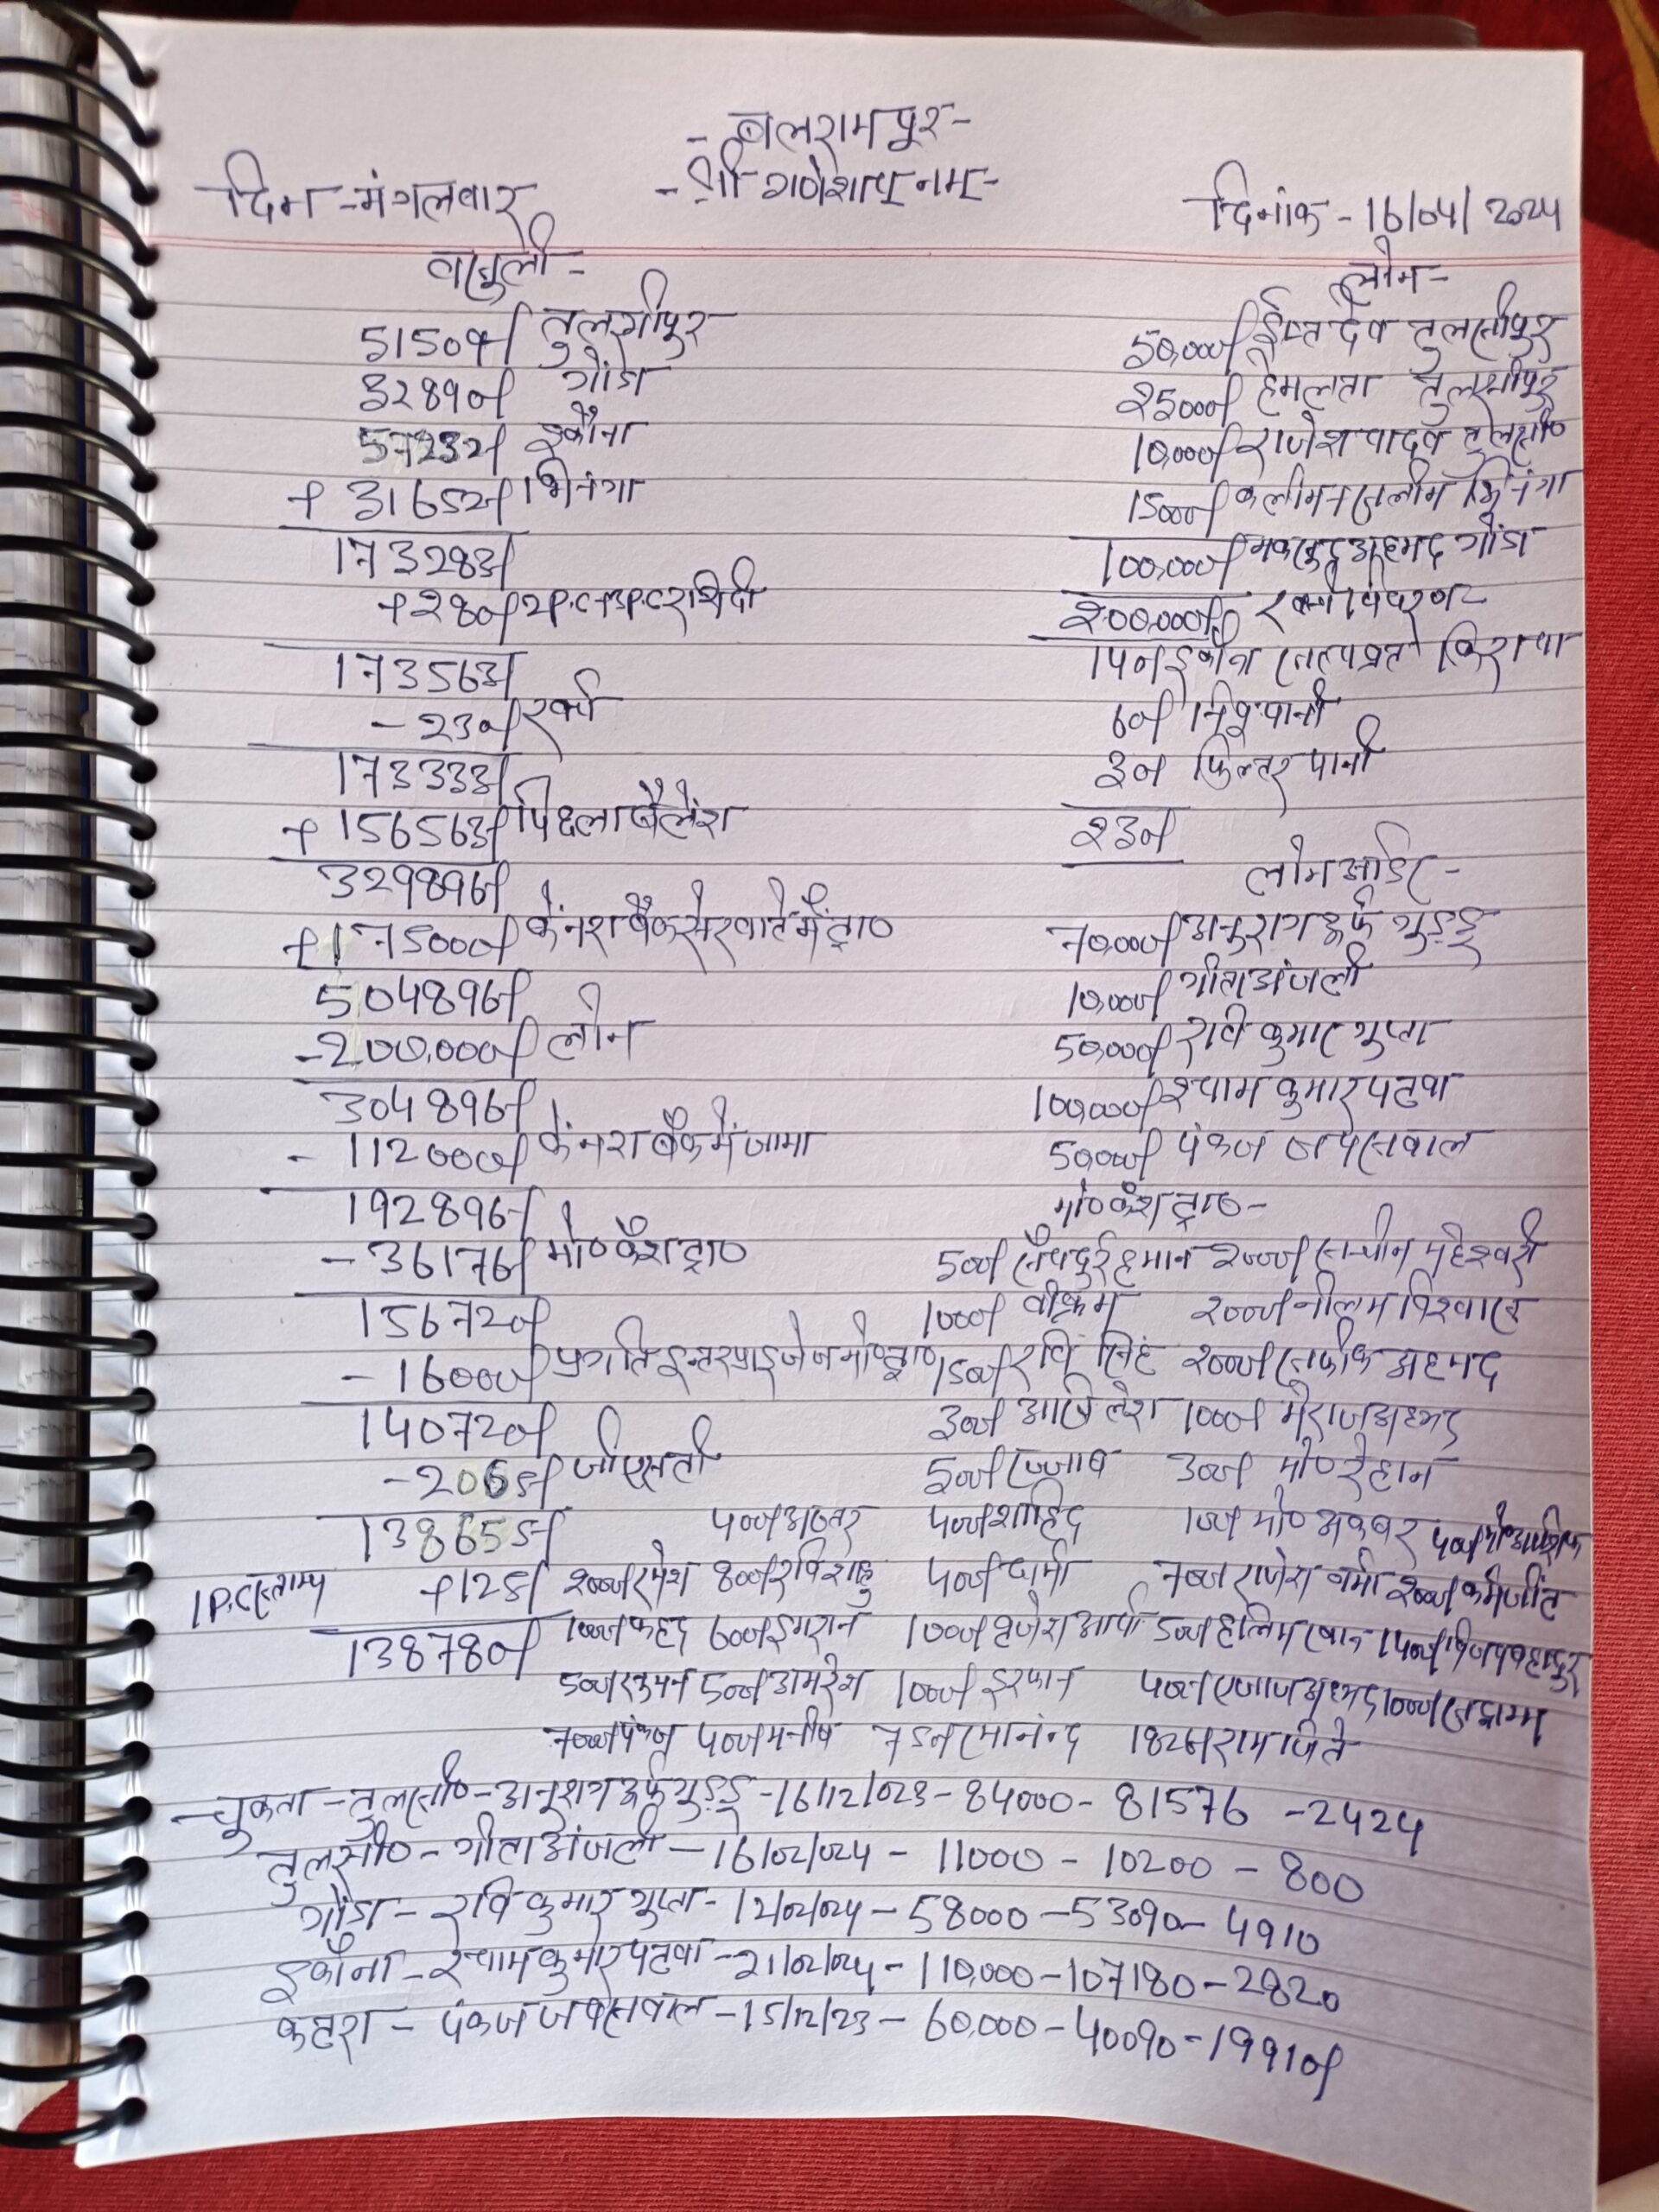 - बलरामपुर -
दिन - मंगलवार - श्री गणेशाय नमः - दिनांक - 16/04/2024
वसुली - लोन -
51509/ तुलसीपुर 50,000/ तुलसीपुर
32890/ गोंडा 25000/ हेमलता तुलसीपुर
57232/ इकौना 10,000/ राजेश यादव तुलसी०
+ 31652/ भिनगा 15000/ कलीम भिनगा
173283/ 100,000/ अहमद गोंडा
+280/ 2P.C+3P.C 200,000/ खर्चा विवरण -
173563/ इकौना किराया
-230/ खर्चा 60/ पानी
173333/ 30/ फिल्टर पानी
+ 156563/ पिछला बैलेंस 230/
329896/ लोन आर्डर -
+175000/ केनरा बैंक से खाते में ट्रा० 70,000/ अनुराग उर्फ गुड्डू
504896/ 10,000/ गीता अंजली
-200,000/ लोन 50,000/ रवि कुमार गुप्ता
304896/ 100,000/ श्याम कुमार पटवा
- 112000/ केनरा बैंक में जामा 50,000/ पंकज जयसवाल
192896/ मो० कैश ट्रा० -
- 36176/ मो० कैश ट्रा० 500/ सैयदुर्रहमान 2000/ सचीन महेश्वरी
156720/ 1000/ वीक्रम 2000/ नीलम
- 16000/ प्रगति इन्टरप्राइजेज मो० ट्रा० 1500/ रवि सिंह 2000/ अहमद
140720/ 300/ अखिलेश 1000/ मेराज अहमद
-2065/ जीएसटी 500/ 300/ मो० रेहान
138655/ 400/ 400/ शाहिद मो० अकबर
1P.C स्टाम्प +125/ 2000/ रमेश 800/ रवि शाहु 400/ राजेश वर्मा
138780/ 1000/ फहद 600/ इमरान 1000/ 500/ हलिम खान
500/ 500/ अमरेश 1000/ इरफान एजाज अहमद
पंकज 400/ मनीष
चुकता - तुलसी० - अनुराग उर्फ गुड्डू - 16/12/023 - 84000 - 81576 - 2424
तुलसी० - गीता अंजली - 16/02/024 - 11000 - 10200 - 800
गोंडा - रवि कुमार गुप्ता - 12/02/024 - 58000 - 53090 - 4910
इकौना - श्याम कुमार पटवा - 21/02/024 - 110,000 - 107180 - 2820
कटरा - पंकज जयसवाल - 15/12/23 - 60,000 - 40090 - 19910/